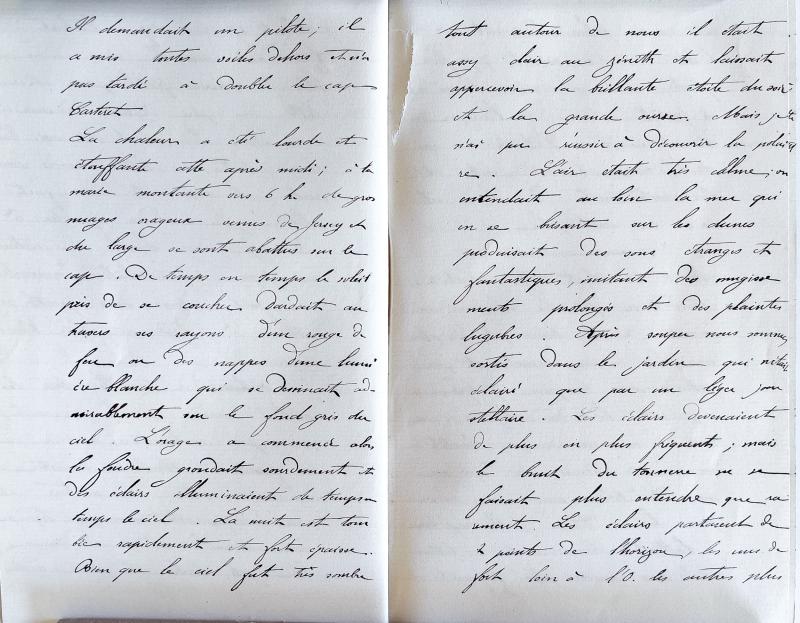 Il demandait un pilote; il
a mis toutes voiles dehors et n'a
pas tardé à doubler le cap
Carteret
La chaleur a été lourde et
étouffante cette après midi; à la
marée montante vers 6 h. de gros
nuages orageux venus de Jersey et
du large se sont abattus sur le
cap. De temps en temps le soleil
près de se coucher dardait au
travers ses rayons d'un rouge de
feu ou des nappes d'une lumi
ère blanche qui se dessinait ad-
mirablement sur le fond gris du
ciel. L'orage a commencé alors
la foudre grondait sourdement et
des éclairs illuminaient de temps en
temps le ciel. La nuit est tom
bée rapidement et fort épaisse.
Bien que le ciel fut très sombre
tout autour de nous il était
assez clair au zénith et laissait
appercevoir la brillante étoile du soir
et la grande ourse. Mais je
n'ai pu réussir à découvrir la polai
re. L'air était très calme; on
entendait au loin la mer qui
en se brisant sur les dunes
produisait des sons étranges et
fantastiques, imitant des mugisse
ments prolongés et des plaintes
lugubres. Après souper nous sommes
sortis dans le jardin qui n'était
éclairé que par un léger jour
stellaire. Les éclairs devenaient
de plus en plus fréquents; mais
le bruit du tonnerre ne se
faisait plus entendre que ra
rement. Les éclairs partaient de
2 points de l'horizon, les uns de
fort loin à l'O. les autres plus